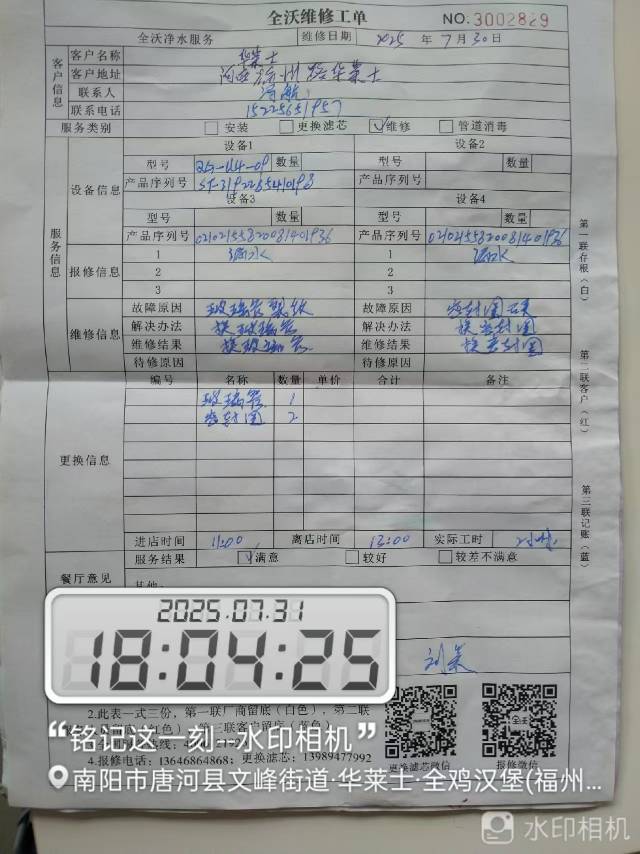 全沃维修工单
NO.3002829
全沃净水服务 维修日期 2025 年 7 月 30 日
客户信息
客户名称 华莱士
客户地址 州路华莱士
联系人
联系电话 15225651957
服务类别 安装 更换滤芯 维修 管道消毒
服务信息
设备信息
设备1 设备2
型号 数量 型号 数量
产品序列号 产品序列号
设备3 设备4
型号 数量 型号 数量
产品序列号 02102155820081401936 产品序列号 02102155820081401936
报修信息
1 漏水 1 漏水
2 2
3 3
维修信息
故障原因 玻璃管裂纹 故障原因 密封圈
解决办法 换玻璃管 解决办法 换密封圈
维修结果 换玻璃管 维修结果 换密封圈
待修原因 待修原因
更换信息
编号 名称 数量 单价 合计 备注
玻璃管 1
密封圈 2
进店时间 11:00 离店时间 12:00 实际工时
餐厅意见
服务结果 满意 较好 较差不满意
其他:
第一联存根(白)
第二联客户(红)
第三联记账(蓝)
2025.07.31
18:04:25
2.此表一式三份,第一联厂商留底(白色),第二联
4.报修电话:13646864868;更换滤芯:13989477992
更换滤芯微信 报修微信
“铭记这一刻-水印相机”
南阳市唐河县文峰街道·华莱士·全鸡汉堡(福州...
水印相机